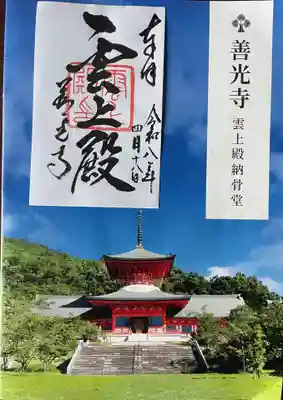 善光寺
雲上殿納骨堂
奉拝
雲上殿
善光寺
令和八年
四月十八日